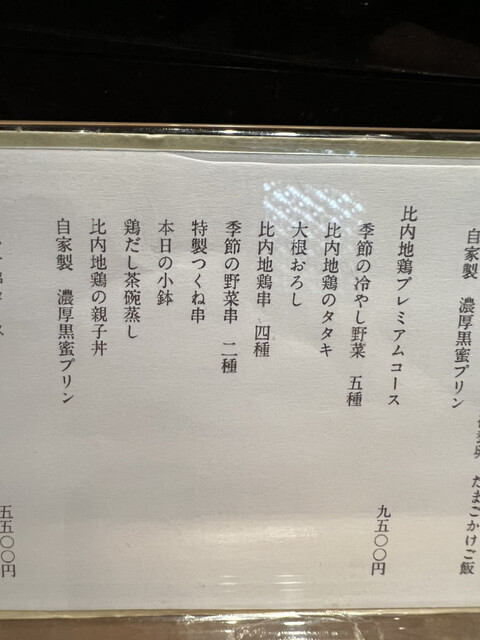 たまごかけご飯
自家製　濃厚黒蜜プリン
比内地鶏プレミアムコース　九五〇〇円
季節の冷やし野菜　五種
比内地鶏のタタキ
大根おろし
比内地鶏串　四種
季節の野菜串　二種
特製つくね串
本日の小鉢
鶏だし茶碗蒸し
比内地鶏の親子丼
自家製　濃厚黒蜜プリン
五五〇〇円